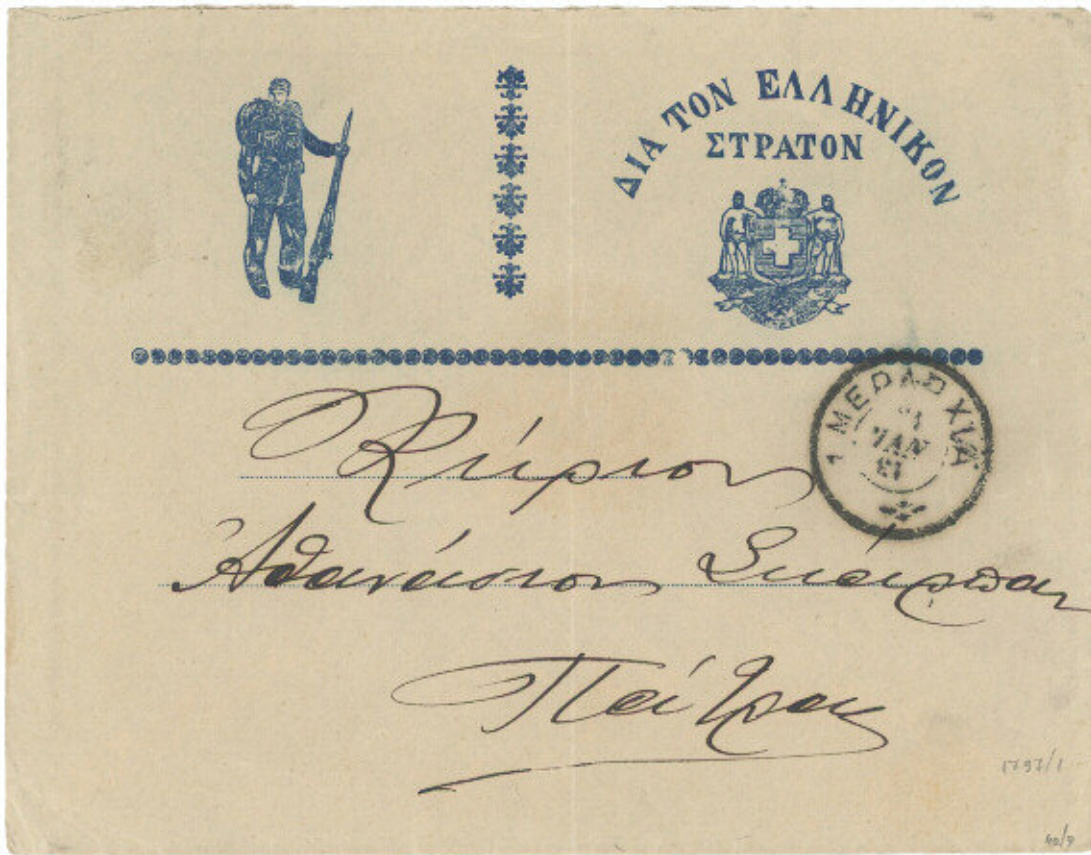 ΔΙΑ ΤΟΝ ΕΛΛΗΝΙΚΟΝ
ΣΤΡΑΤΟΝ
1 ΜΕΡΑΡΧΙΑ
ΙΑΝ
Κύριον
Ἀθανάσιον Σκάρπαν
Πάτραι
1797/1
40/9